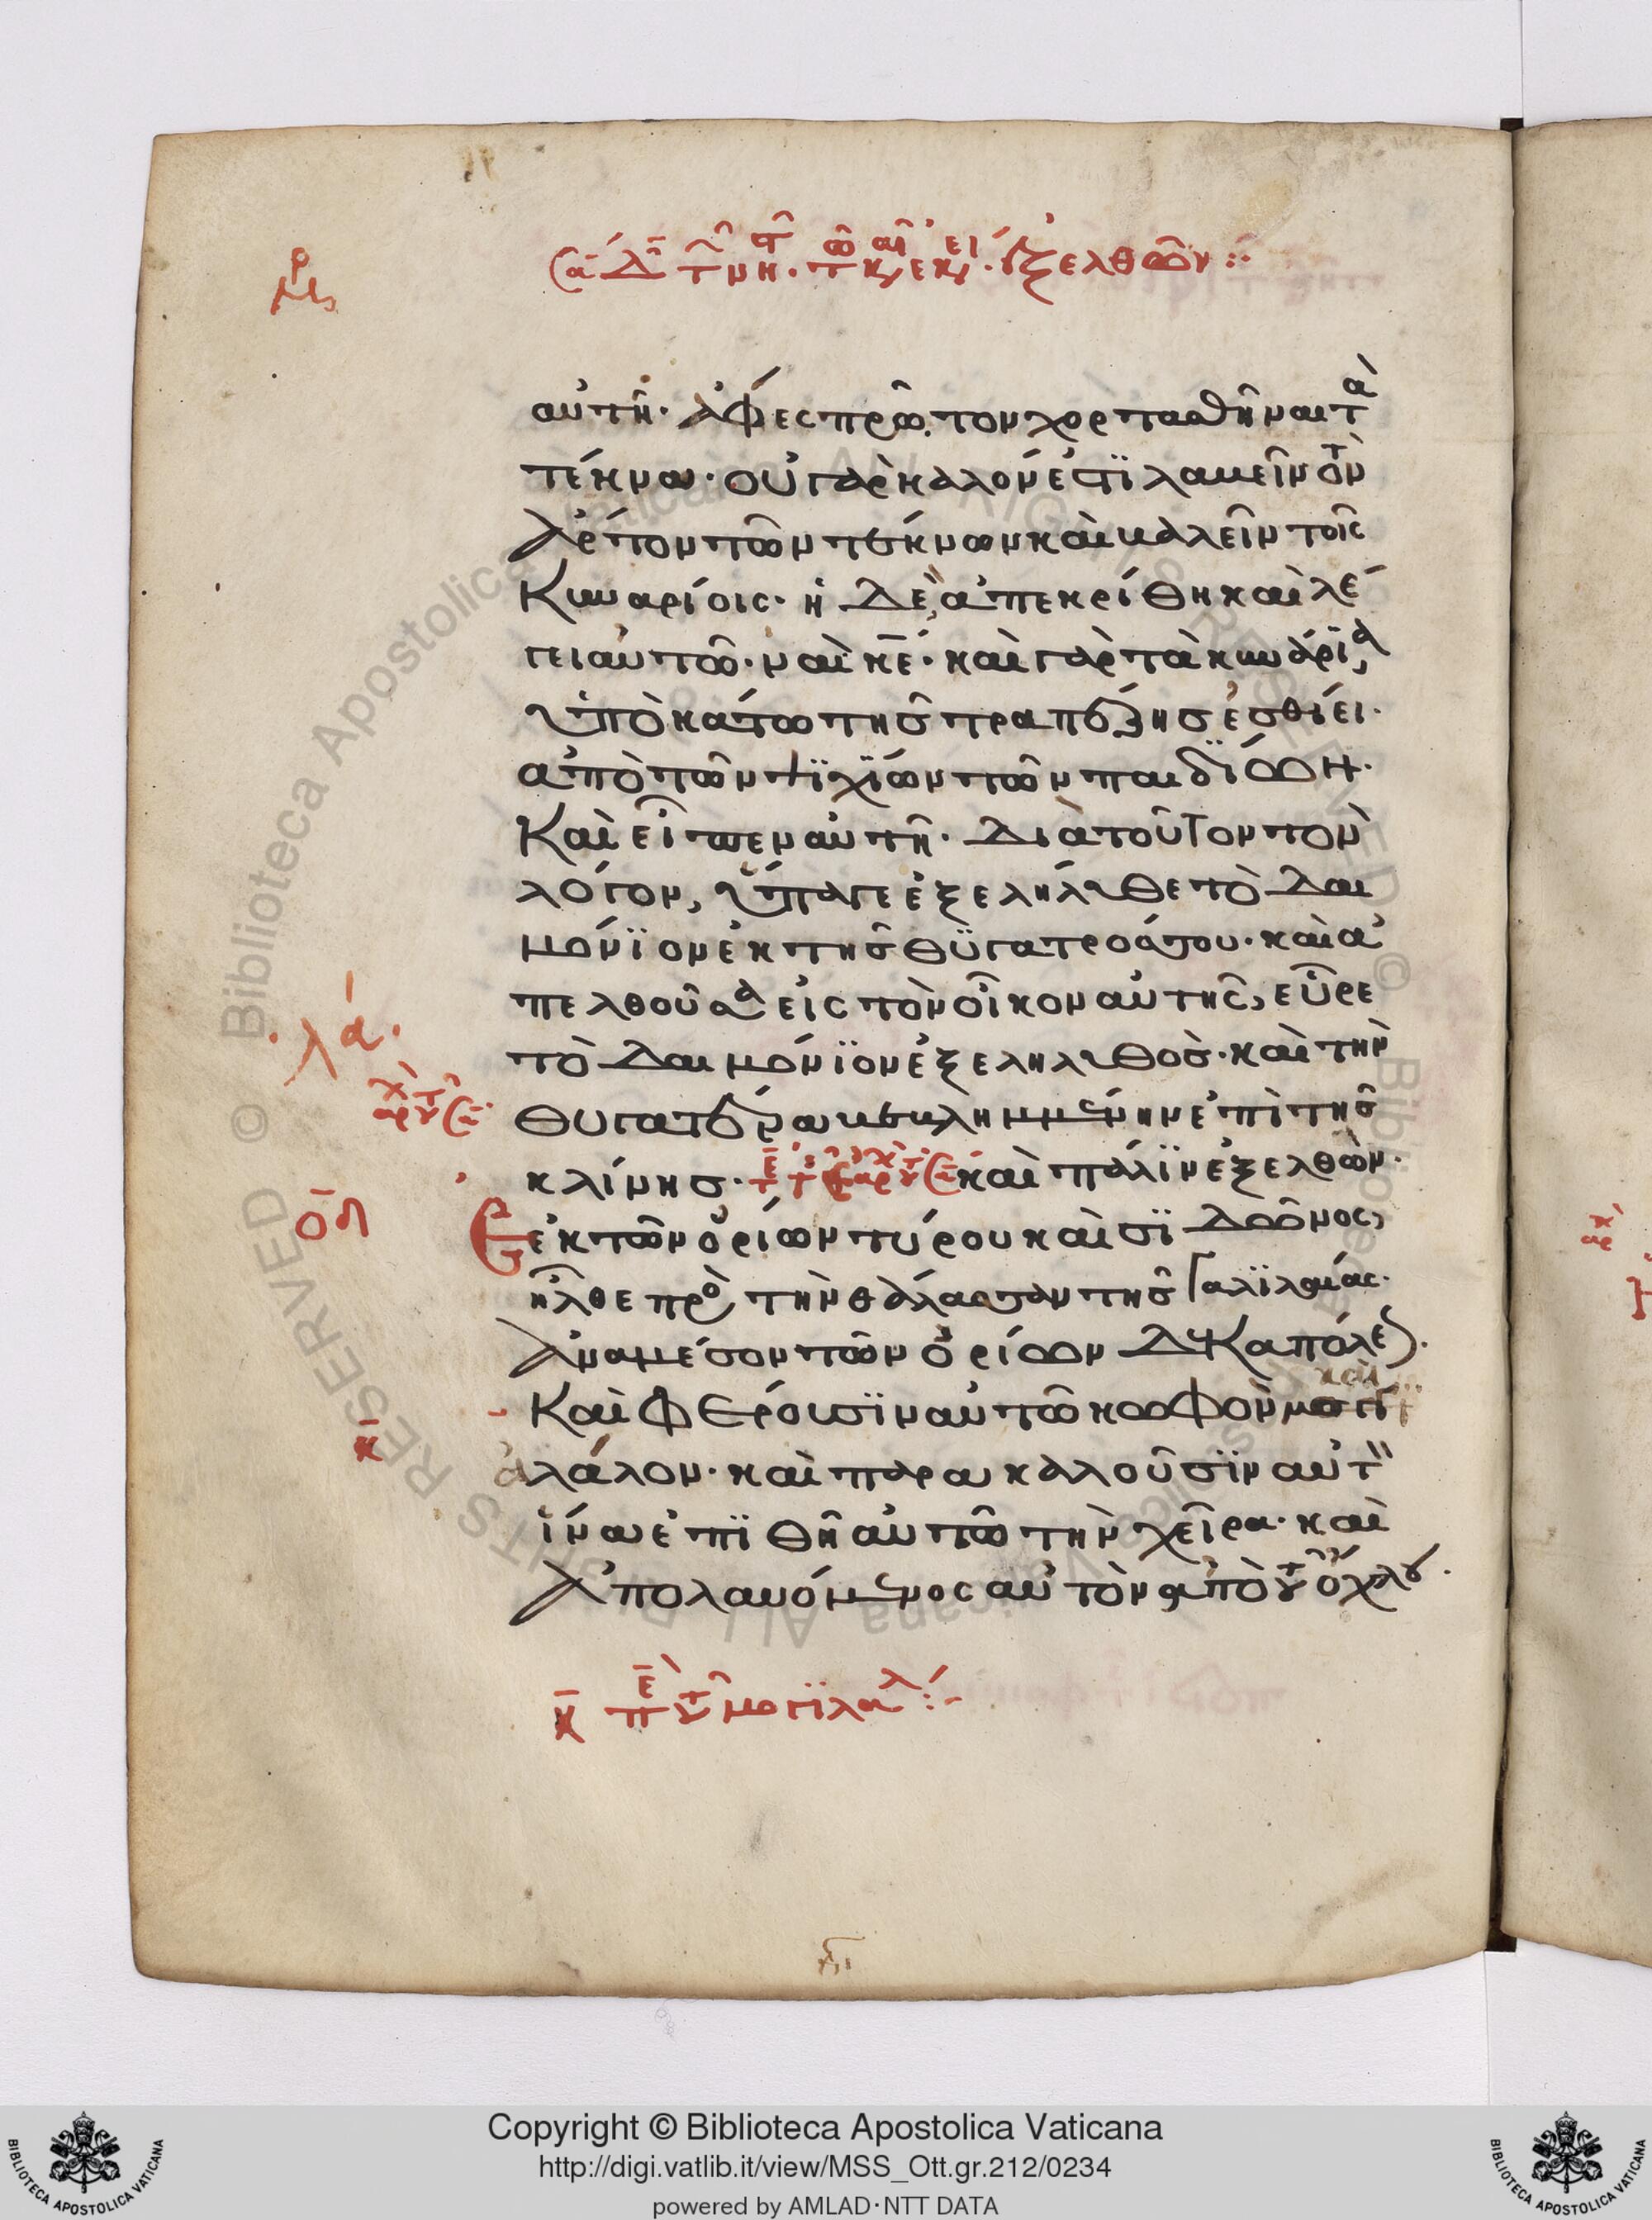 αὐτῆ· ἄφες πρῶτον χορτασθῆναι τὰ
τέκνα· οὐ γὰρ καλόν ἐστϊ λαβεῖν τὸν
ἄρτον τῶν τέκνων καὶ βαλεῖν τοῖς
κυναρίοις· ἡ δὲ ἀπεκρίθη καὶ λέ
γει αὐτῶ· ναὶ κε· καὶ γὰρ τὰ κυνάρϊα,
ὑπὸ κάτω τῆς τραπέζης ἐσθίει·
ἀπὸ τῶν ψϊχίων τῶν παιδΐων·
Καὶ εἶπεν αὐτῆ· διὰ τοῦτον τὸν
λόγον, ὕπαγε ἐξελήλυθε τὸ δαι
μόνϊον ἐκ τῆς θϋγατρός σου· καὶ ἀ
πελθοῦσα εἰς τὸν οἶκον αὐτῆς, εὗρε
τὸ δαιμόνϊον ἐξεληλυθὸς· καὶ τὴν
θυγατέρα βεβλημμένην ἐπὶ τῆς
κλίνης· καὶ πάλϊν ἐξελθὼν·
ἐκ τῶν ὁρίων τύρου καὶ σϊδῶνος,
ἦλθε πρὸς τὴν θάλασσαν τῆς Γαλϊλαίας·
ἀναμέσον τῶν ὁρίων Δεκαπόλεως·
Καὶ φέρουσϊν αὐτῶ κωφὸν μογγι
λάλον· καὶ παρακαλοῦσϊν αὐτὸν
ἵνα ἐπϊθῆ αὐτῶ τὴν χεῖρα· καὶ
ἀπολαβόμενος αὐτὸν ἀπὸ τοῦ ὄχλου·
λα
οδ
κ
Copyright © Biblioteca Apostolica Vaticana
http://digi.vatlib.it/view/MSS_Ott.gr.212/0234
powered by AMLAD·NTT DATA